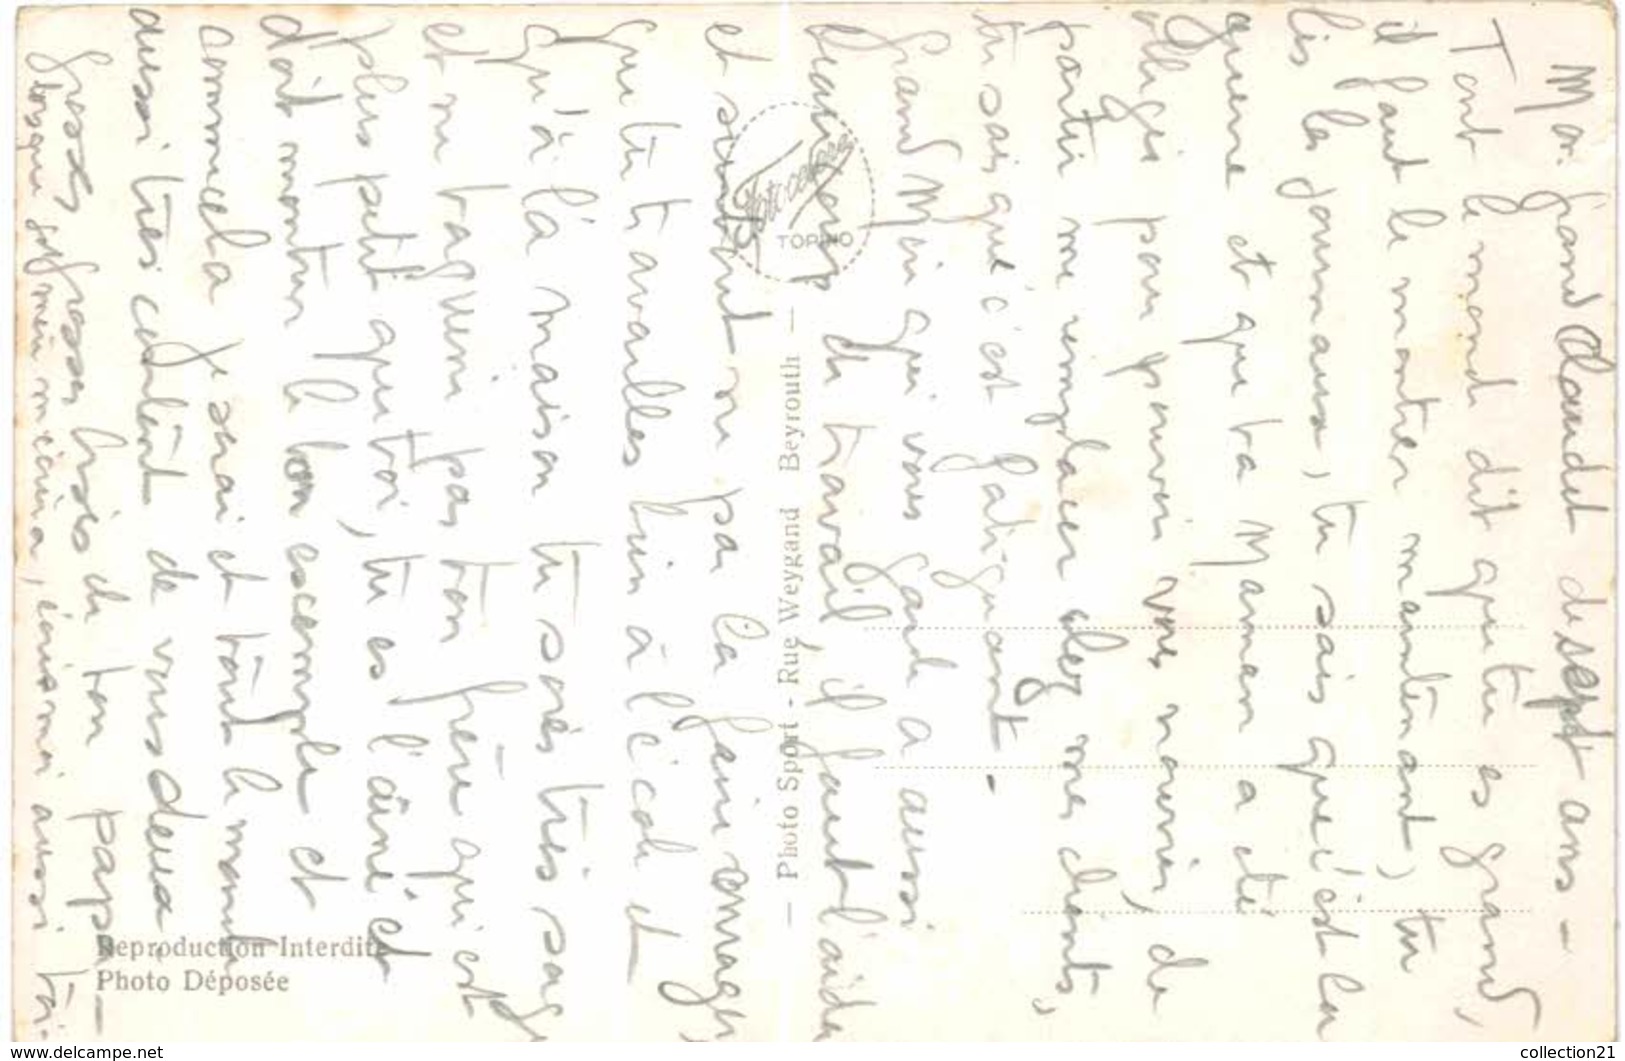 Mon grand Claudet de sept ans -
Tout le monde dit que tu es grand,
il faut le montrer maintenant, tu
lis les journaux, tu sais que c'est la
guerre et que ta Maman a été
obligée pour pouvoir vous nourrir, de
partir me remplacer chez mes clients,
tu sais que c'est fatiguant -
Grand Mère qui vous garde a aussi
beaucoup de travail il faut l'aider
et surtout ne pas la faire enrager,
que tu travailles bien à l'école et
qu'à la maison tu sois très sage
et ne taquine pas ton frère qui est
plus petit que toi, tu es l'aîné et
doit montrer le bon escemple et
comme cela je serai et tout le monde
aussi très content de vous deux,
grosses grosses bises de ton papa -
lorsque mémé m'écrira, écris moi aussi toi.
Foto celere
TORINO
— Photo Sport - Rue Weygand Beyrouth —
Reproduction Interdite
Photo Déposée
www.delcampe.net
collection21